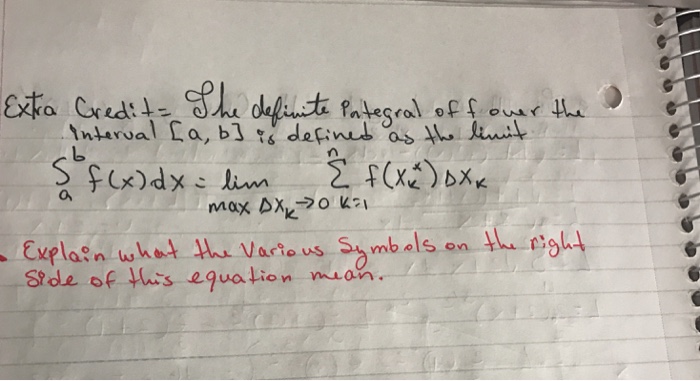 Extra Credit= The definite Integral of f over the
Interval [a, b] is defined as the limit
∫ₐᵇ f(x)dx = lim max Δxₖ→0 Σₖ₌₁ⁿ f(xₖ*)Δxₖ
• Explain what the Various Symbols on the right
Side of this equation mean.